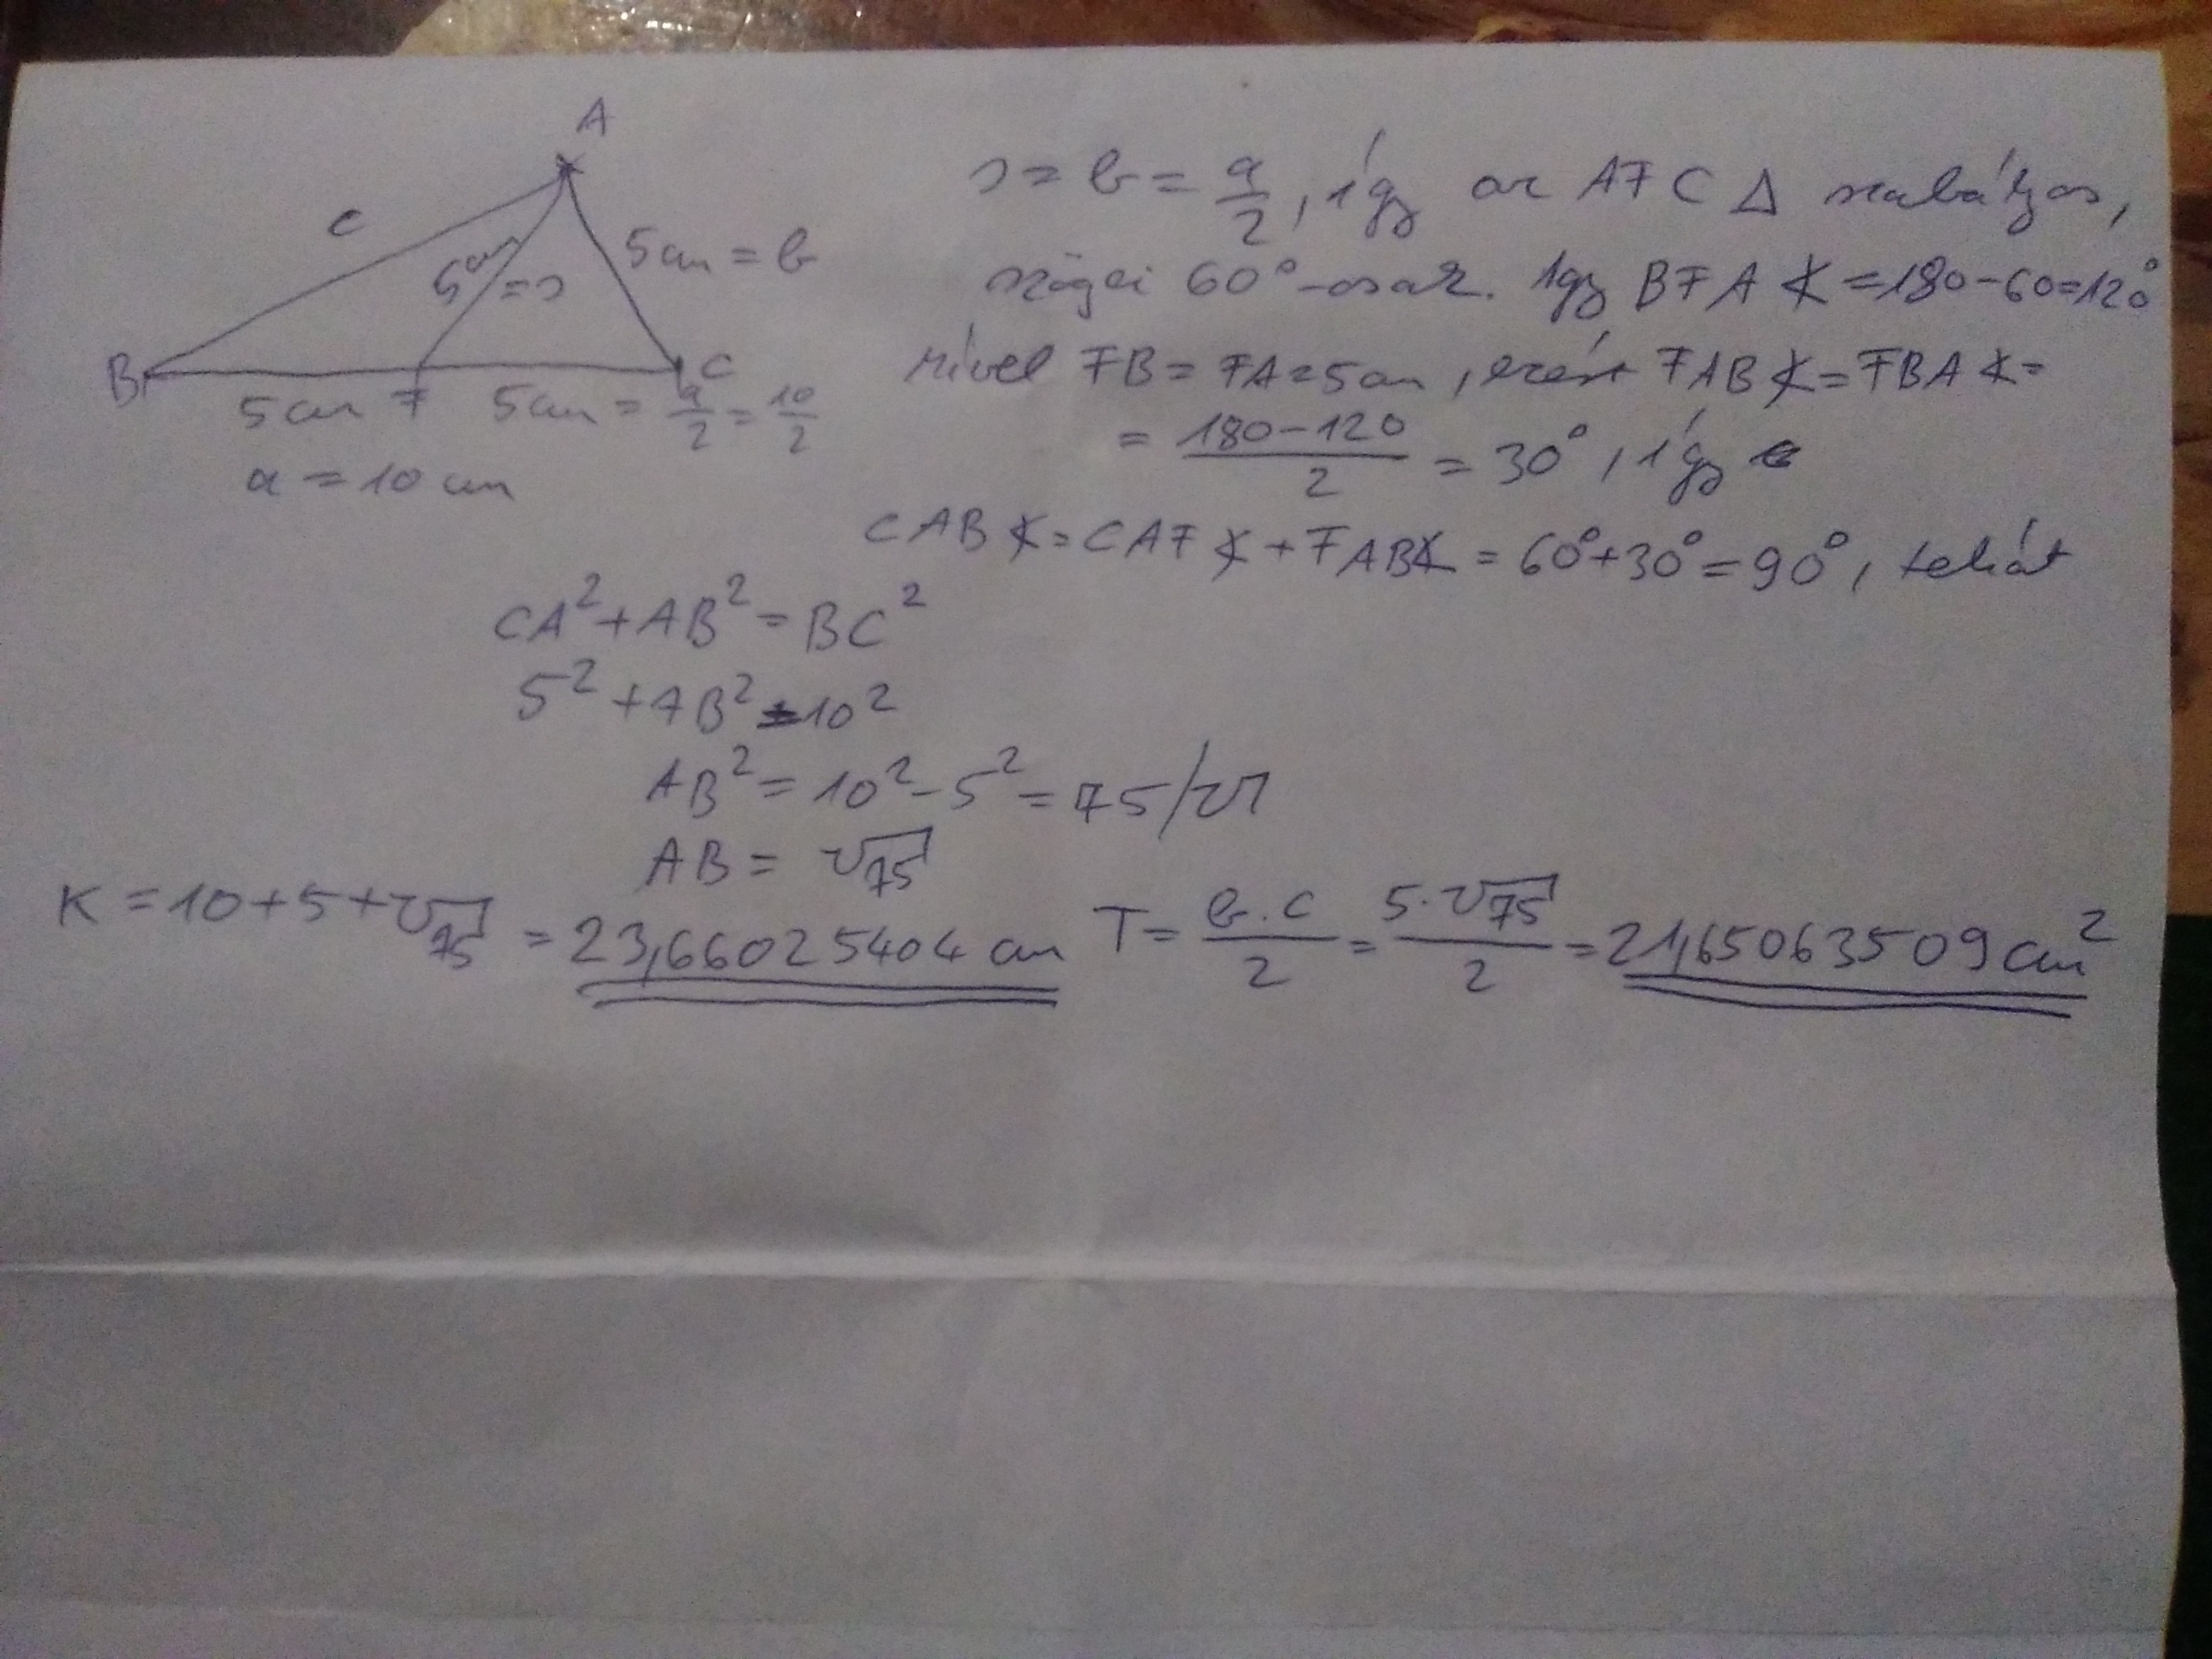 A
c
5 cm = s
5 cm = b
B
F
C
5 cm
5 cm = a/2 = 10/2
a = 10 cm
s = b = a/2, így az AFC △ szabályos,
szögei 60°-osak. Így BFA ∢ = 180-60=120°
Mivel FB = FA = 5 cm, ezért FAB ∢ = FBA ∢ =
= (180-120)/2 = 30°, így
CAB ∢ = CAF ∢ + FAB ∢ = 60°+30° = 90°, tehát
CA² + AB² = BC²
5² + AB² = 10²
AB² = 10² - 5² = 75 /√
AB = √75
K = 10 + 5 + √75 = 23,66025404 cm
T = b·c/2 = 5·√75/2 = 21,65063509 cm²